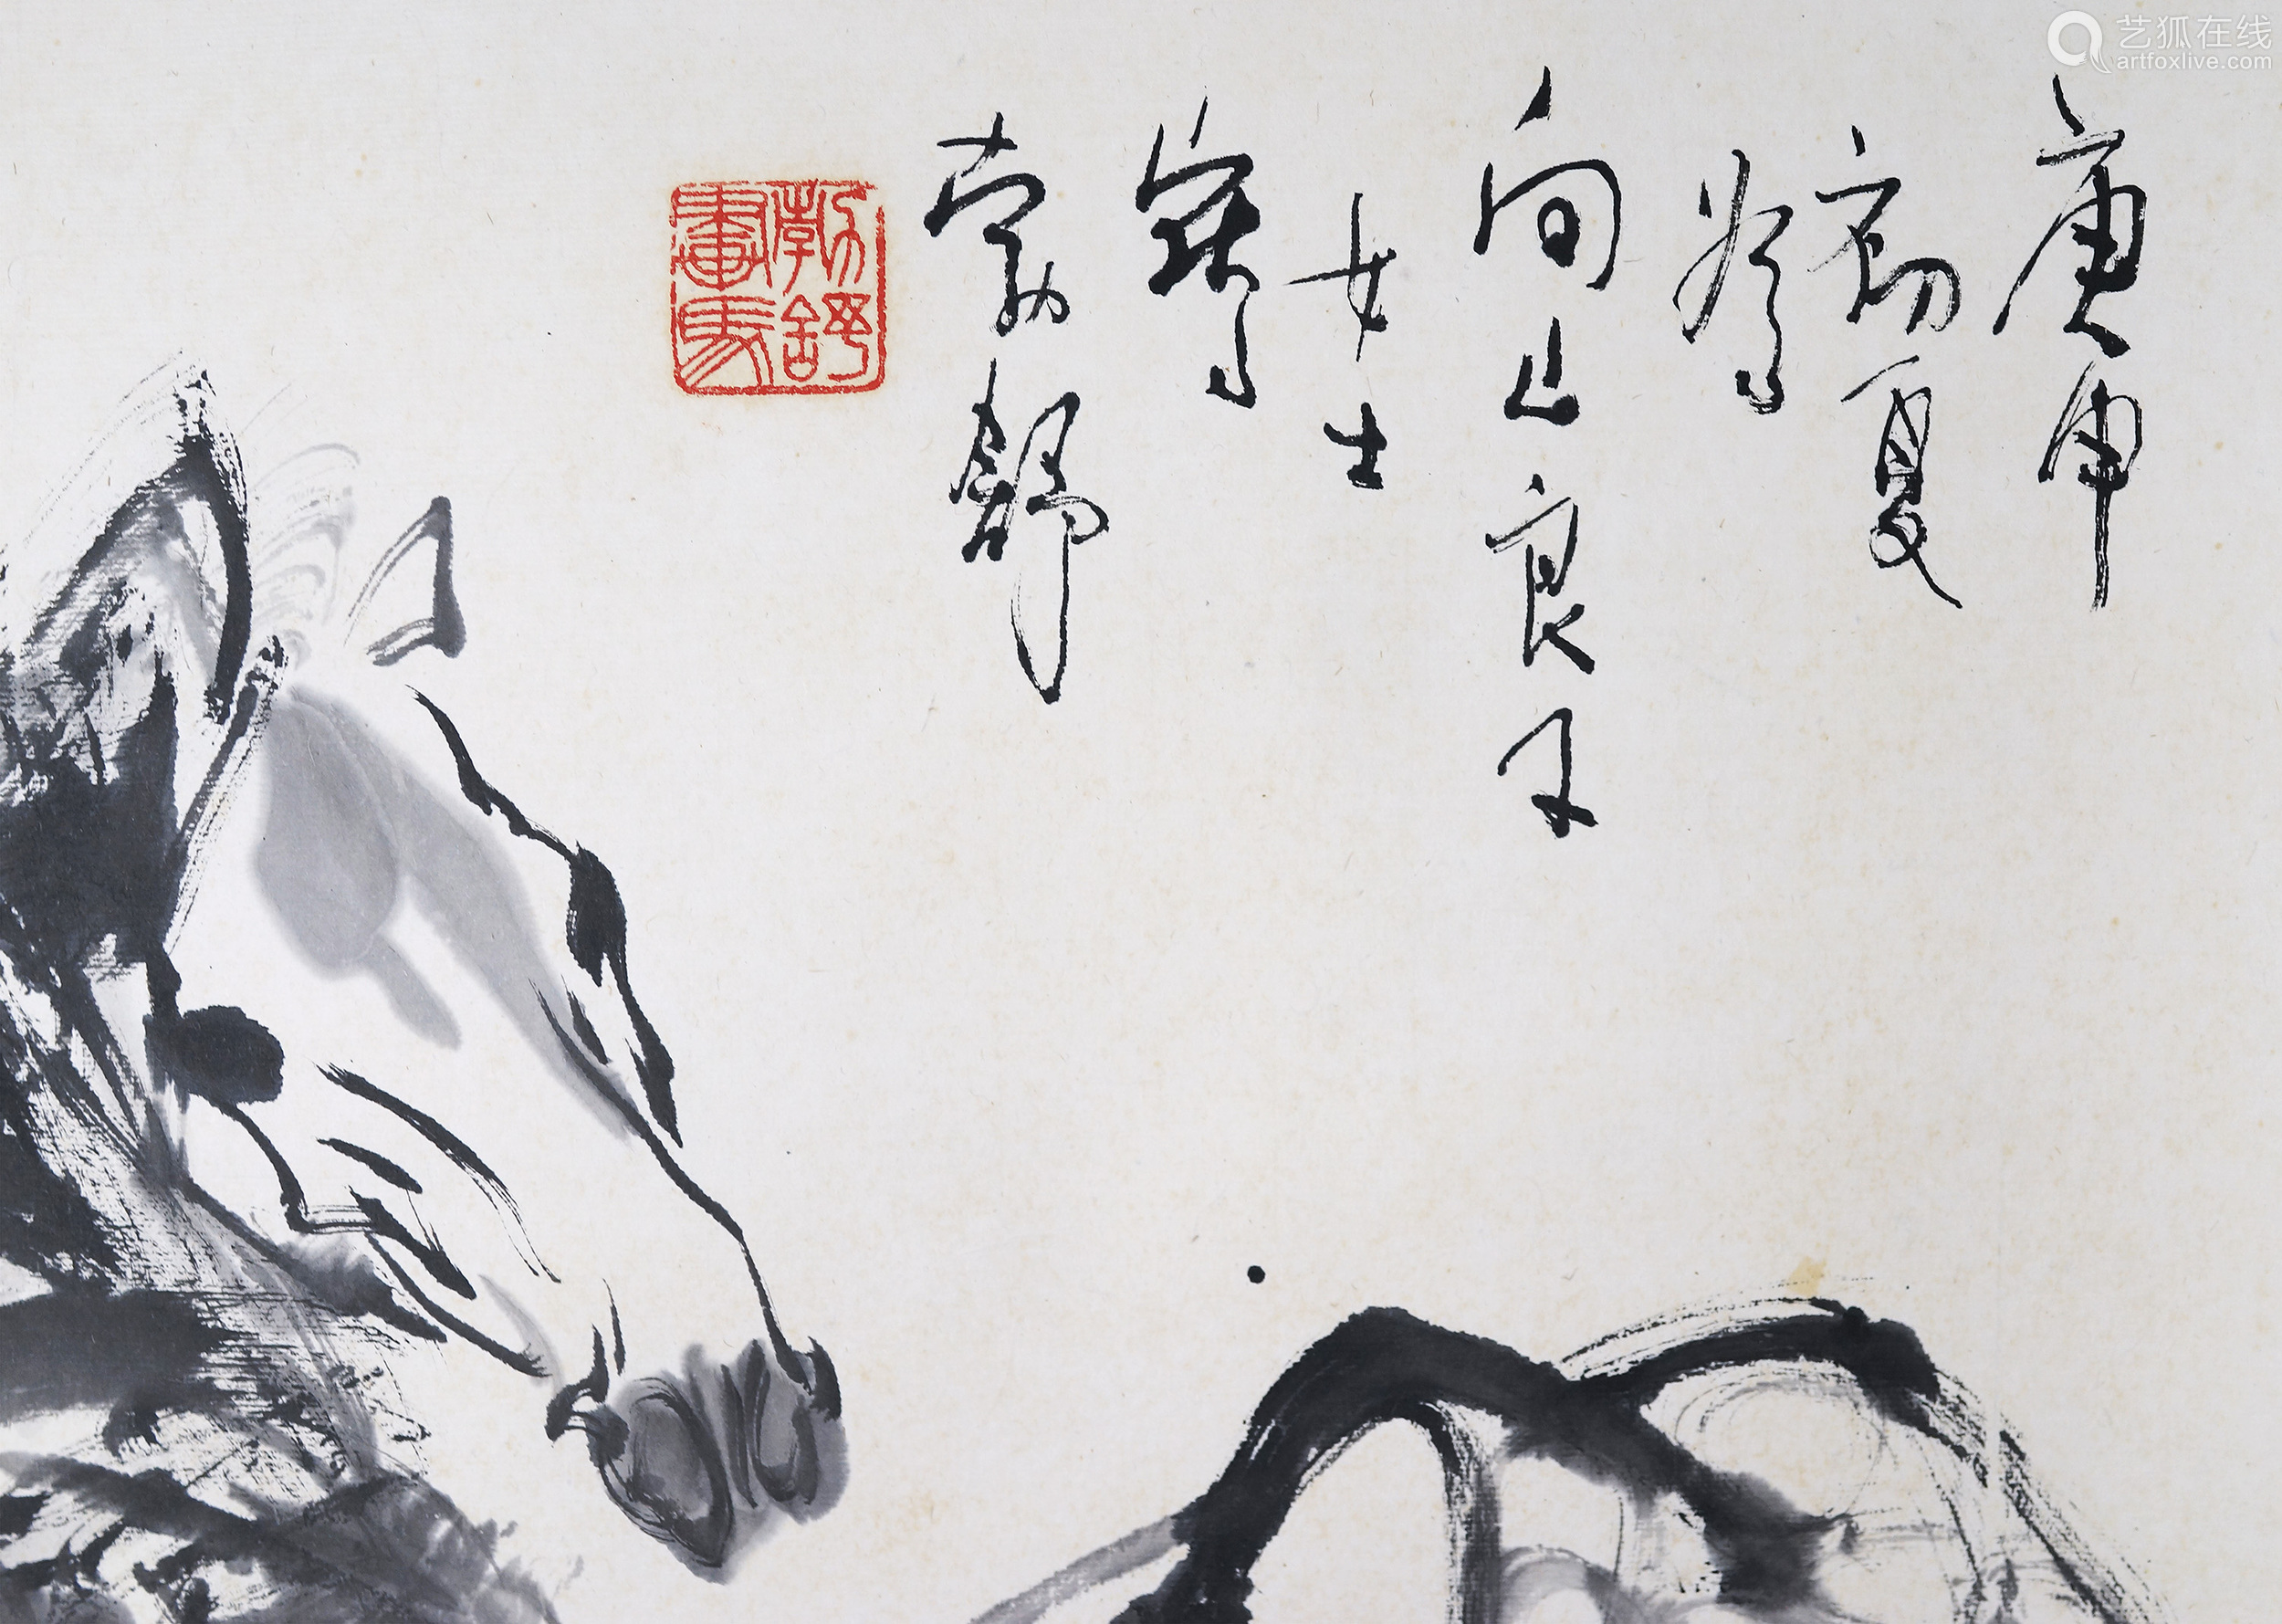 艺狐在线
artfoxlive.com
庚申
初夏
為
向山良子
女士
寫
勃舒
勃舒
畫馬